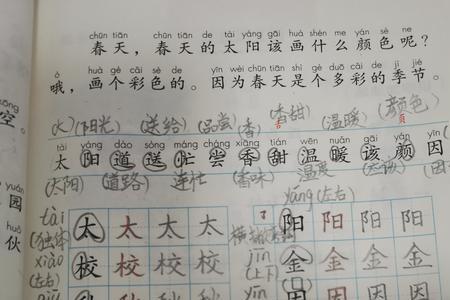 chūn tiān chūn tiān de tài yáng gāi huà shén me yán sè ne
春天，春天的太阳该画什么颜色呢？
ò huà gè cǎi sè de yīn wèi chūn tiān shì gè duō cǎi de jì jié
哦，画个彩色的。因为春天是个多彩的季节。
(阳光) (送给) (品尝) (香甜) (温暖) (颜色)
tài yáng dào sòng máng cháng xiāng tián wēn nuǎn gāi yán yīn
太 阳 道 送 忙 尝 香 甜 温 暖 该 颜 因
(太阳) (道路) 连忙 (香味) 温度
yáng (左右)
tài 太 太 太 太 阳 阳 阳 阳
(独体)
xiào 校 校 校 校 jīn 金 金 金 金
(左右) (上下)
空。
yuán
园
伙